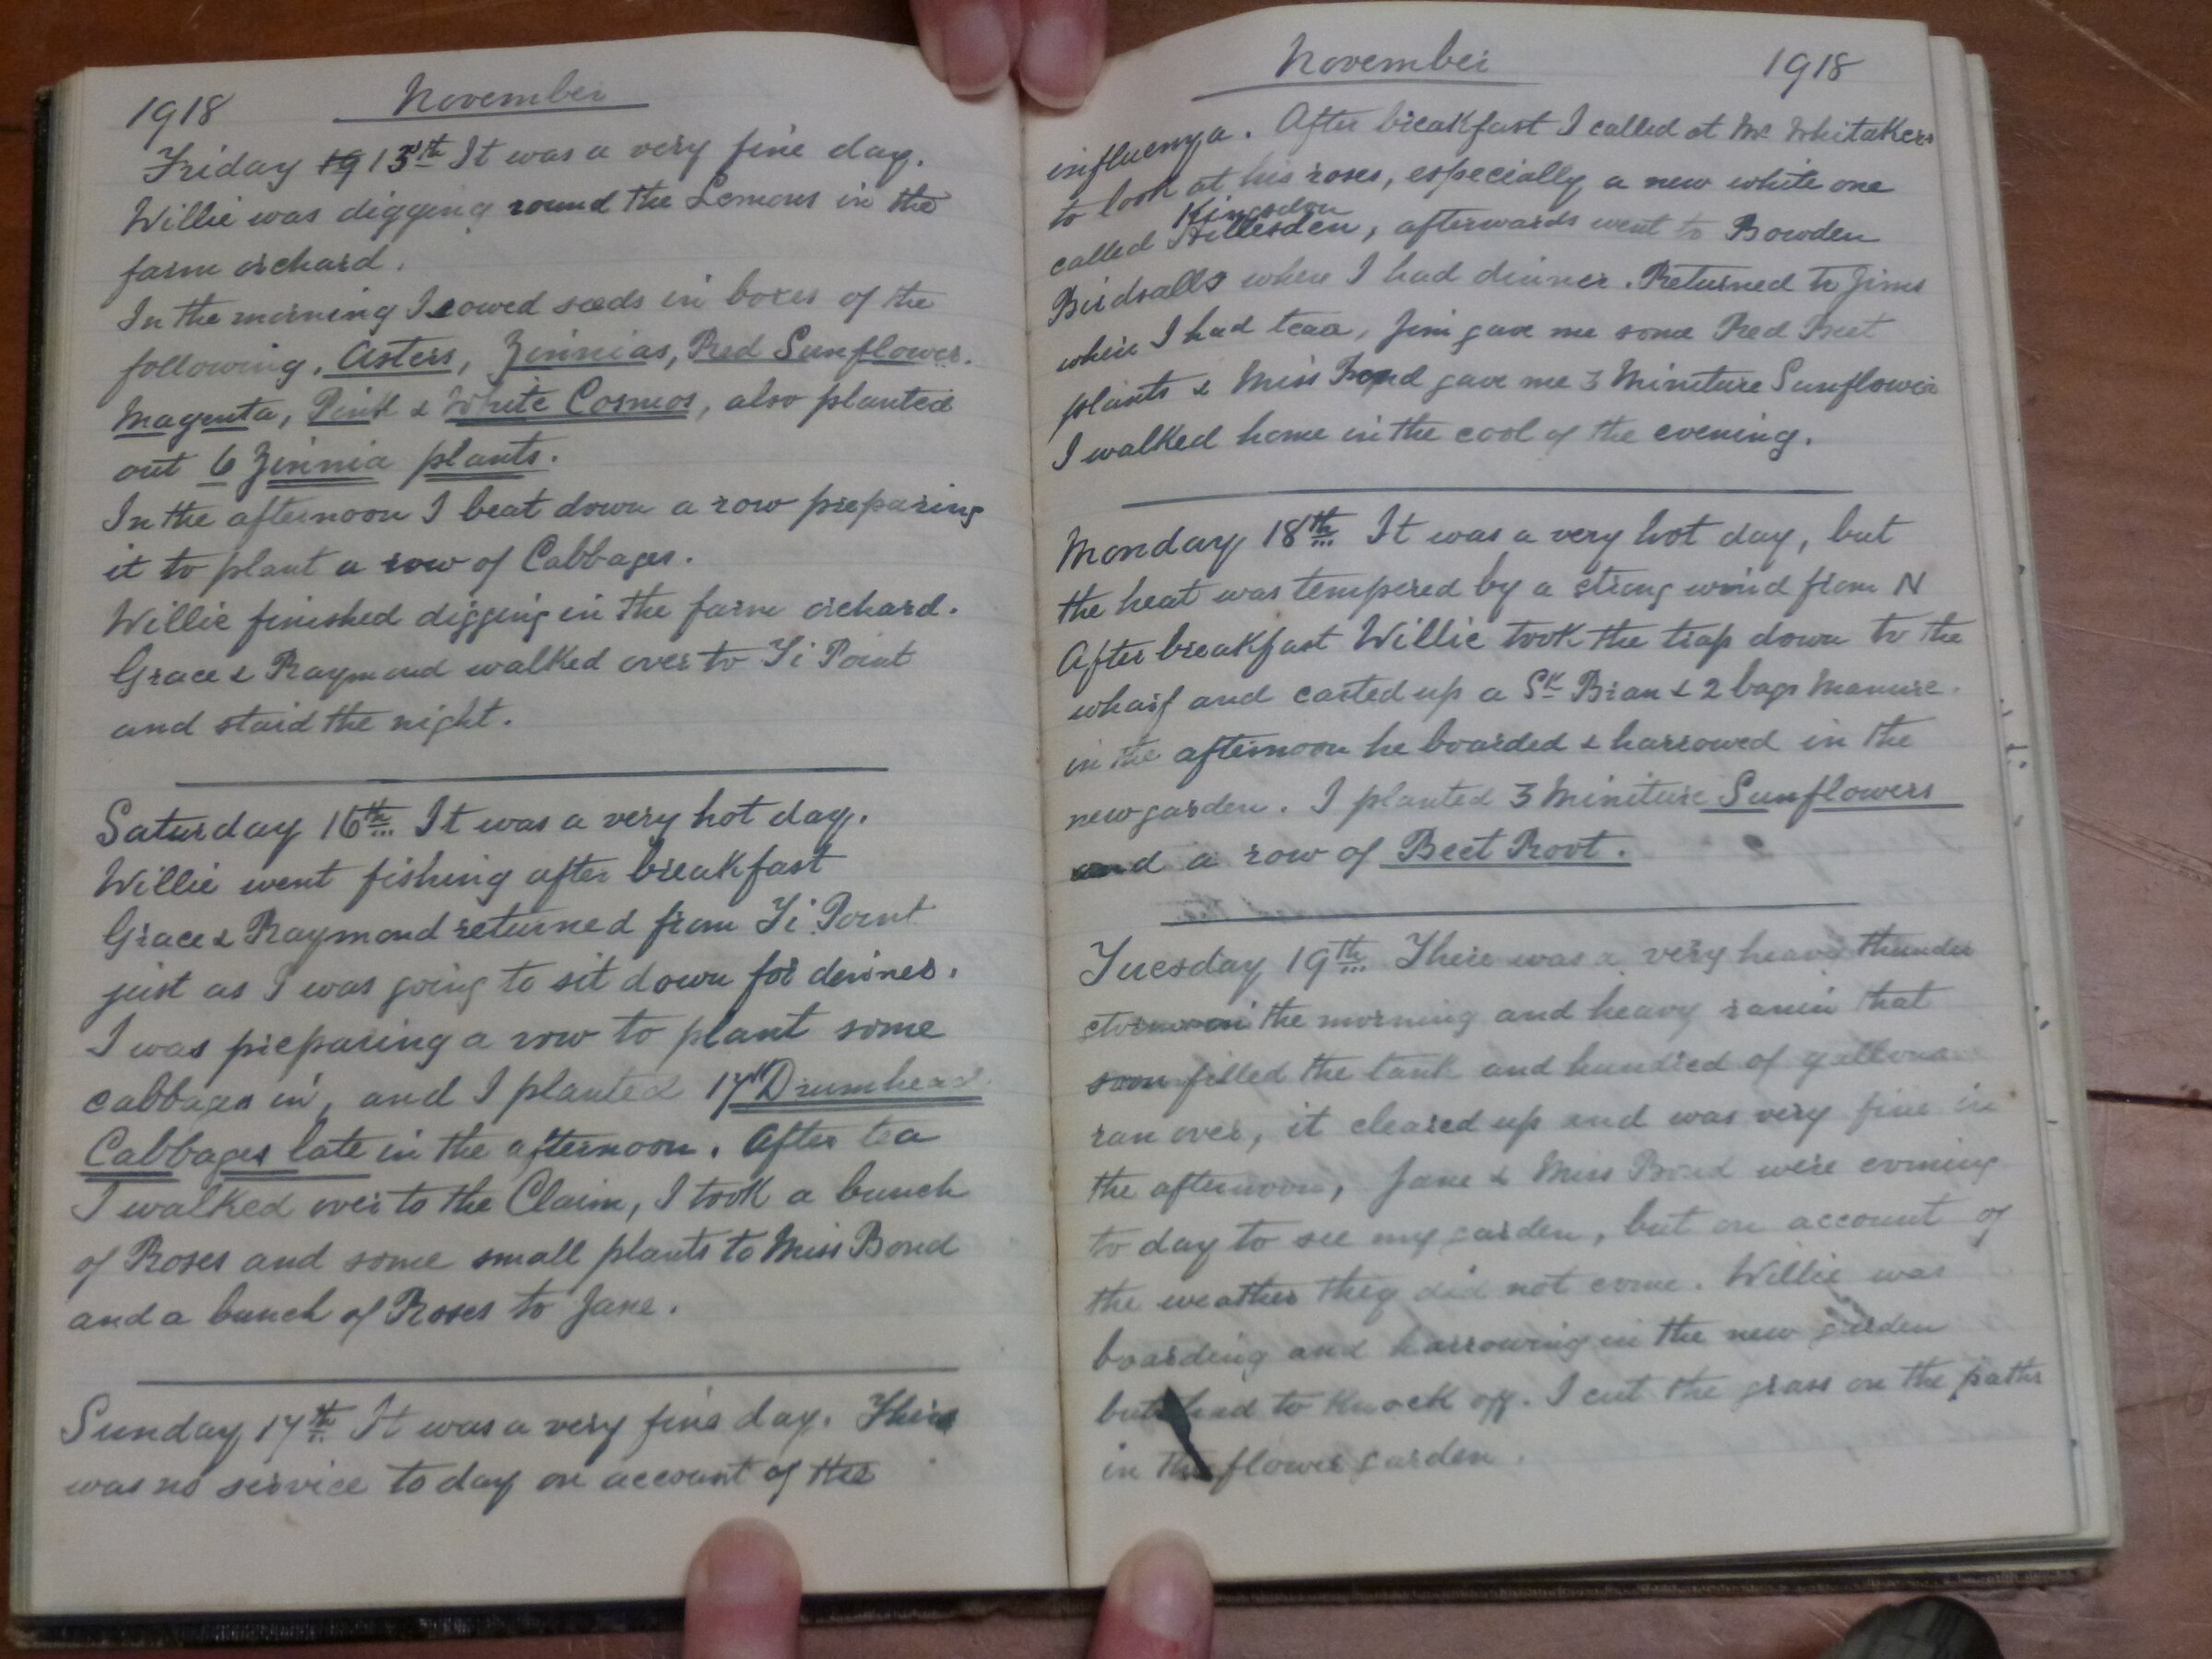 1918 November
Friday 19 15th It was a very fine day.
Willie was digging round the Lemons in the
farm orchard.
In the morning I sowed seeds in boxes of the
following, Asters, Zinnias, Red Sunflower.
Magenta, Pink & White Cosmos, also planted
out 6 Zinnia plants.
In the afternoon I beat down a row preparing
it to plant a row of Cabbages.
Willie finished digging in the farm orchard.
Grace & Raymond walked over to Ti Point
and staid the night.
Saturday 16th It was a very hot day.
Willie went fishing after breakfast
Grace & Raymond returned from Ti Point
just as I was going to sit down for dinner.
I was preparing a row to plant some
cabbages in, and I planted 17 Drumhead
Cabbages late in the afternoon. After tea
I walked over to the Claim, I took a bunch
of Roses and some small plants to Miss Bond
and a bunch of Roses to Jane.
Sunday 17th It was a very fine day. There
was no service to day on account of the
November 1918
influenza. After breakfast I called at Mr Whitakers
to look at his roses, especially a new white one
Kingsdon
called Hillesden, afterwards went to Bowden
Birdsalls where I had dinner. Returned to Jims
where I had teaa, Jim gave me some Red Beet
plants & Miss Bond gave me 3 Miniture Sunflower
I walked home in the cool of the evening.
Monday 18th It was a very hot day, but
the heat was tempered by a strong wind from N
After breakfast Willie took the trap down to the
wharf and carted up a Sk Bran & 2 bags Manure.
in the afternoon he boarded & harrowed in the
new garden. I planted 3 Miniture Sunflowers
and a row of Beet Root.
Tuesday 19th There was a very heavy thunder
storm in the morning and heavy ranin that
soon filled the tank and hundred of gallons
ran over, it cleared up and was very fine in
the afternoon, Jane & Miss Bond were coming
to day to see my garden, but on account of
the weather they did not come. Willie was
boarding and harrowing in the new garden
but had to knock off. I cut the grass on the paths
in the flower garden.